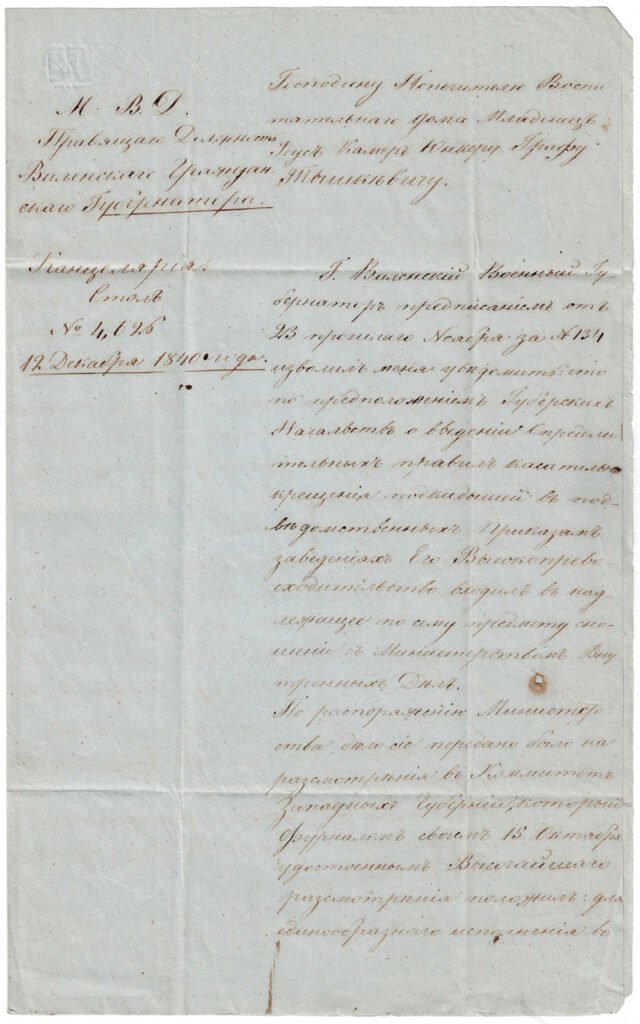 М. В. Д.
Правящаго Должность
Виленскаго Граждан
скаго Губернатора.
Канцелярия.
Столъ
№ 4,626
12 Декабря 1840 года.
Господину Попечителю Воспи
тательнаго дома Младенц
Іисусъ Камеръ Юнкеру Графу
Тышкевичу.
Г. Виленскій Военный Гу
бернаторъ предписаніемъ отъ
23 прошлаго Ноября за № 134
изволилъ меня увѣдомить: что
по предположеніемъ Губерскихъ
Начальствъ о введеніи
тельныхъ правилъ касательно
крещенія подкидышей въ под
вѣдомственныхъ Приказамъ
заведеніяхъ Его Высокопрево
сходительство входилъ въ над
лежащее по сему предмету сно
шеніе съ Министерствомъ Вну
тренныхъ Дѣлъ.
По распоряженію Министер
ства дѣло сіе передано было на
разсмотрѣнія въ Коммитетъ
Западныхъ Губерній, который
журналомъ своимъ 15 Октября
удостоеннымъ Высочайшаго
разсмотрѣнія положилъ: для
единообразнаго исполненія во